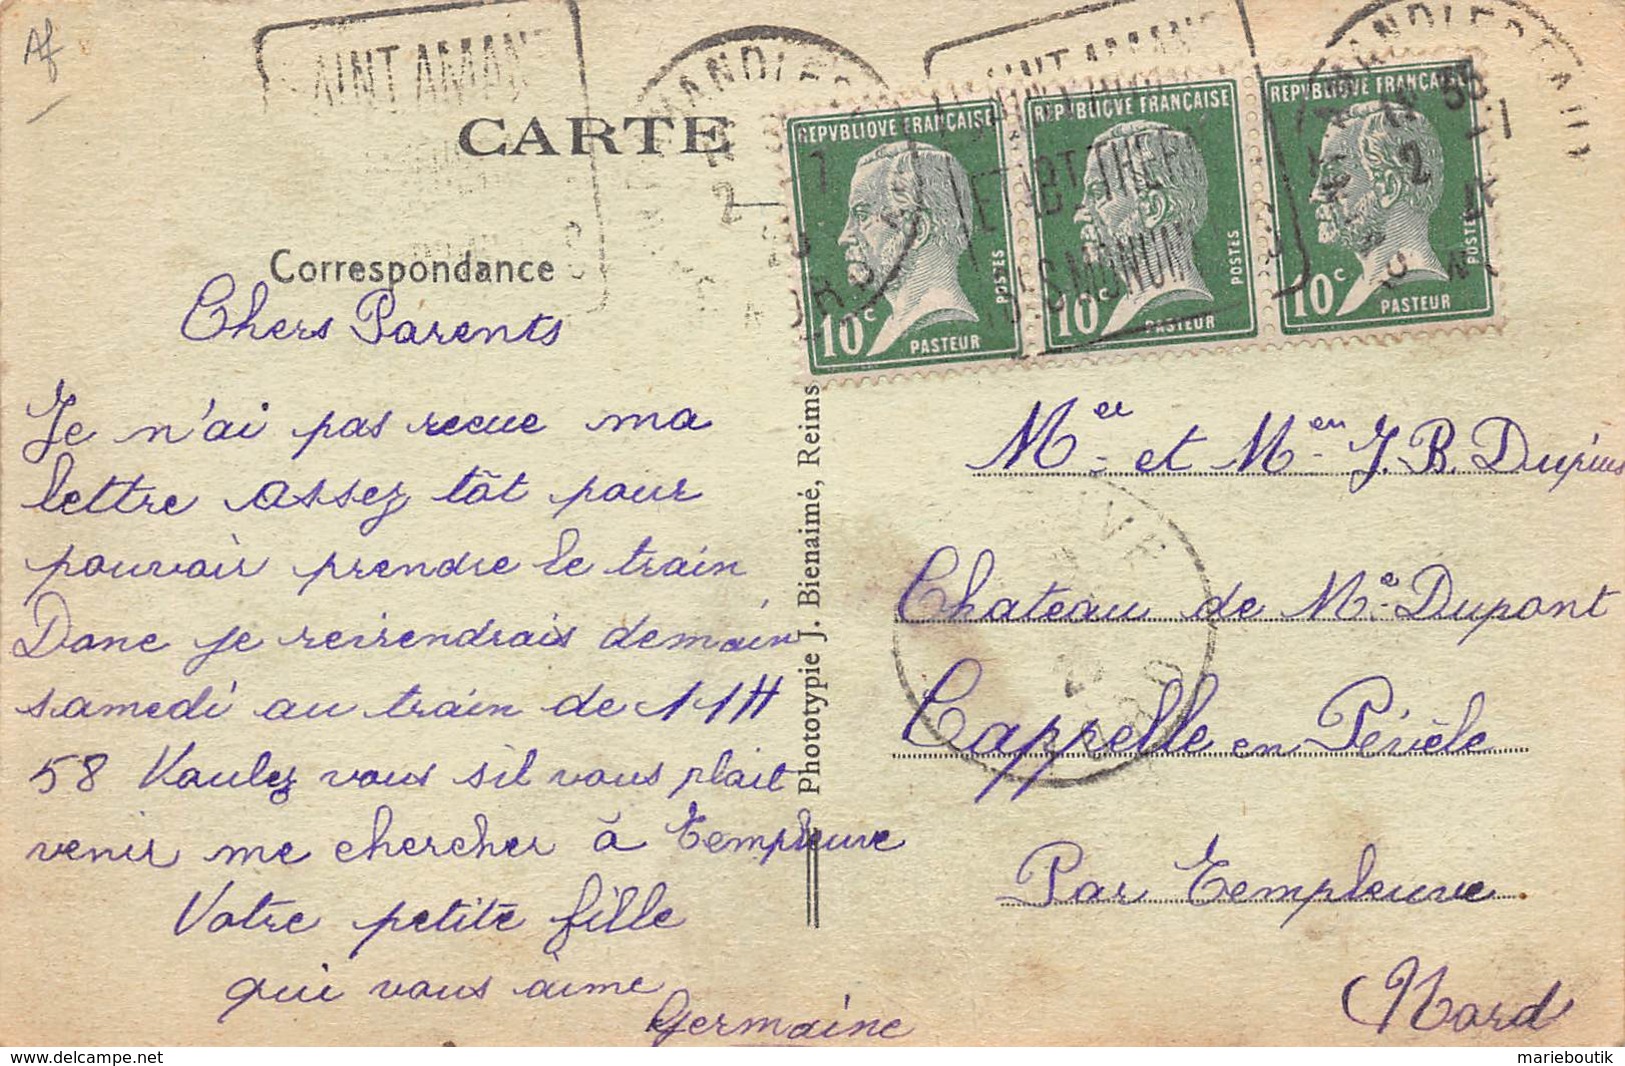 Af
SAINT AMAND
CARTE
Correspondance
REPVBLIQVE FRANÇAISE
10c
POSTES
PASTEUR
REPVBLIQVE FRANÇAISE
10c
POSTES
PASTEUR
REPVBLIQVE FRANÇAISE
10c
POSTES
PASTEUR
Chers Parents
Je n'ai pas recue ma
lettre assez tôt pour
pouvoir prendre le train
Donc je reirendrais demain
samedi au train de 11H
58 Voulez vous sil vous plait
venir me chercher à Templeuve
Votre petite fille
qui vous aime
Germaine
Phototypie J. Bienaimé, Reims
Mer et Men J. B. Dupuis
Chateau de Me Dupont
Cappelle en Pévèle
Par Templeuve
Nord
marieboutik